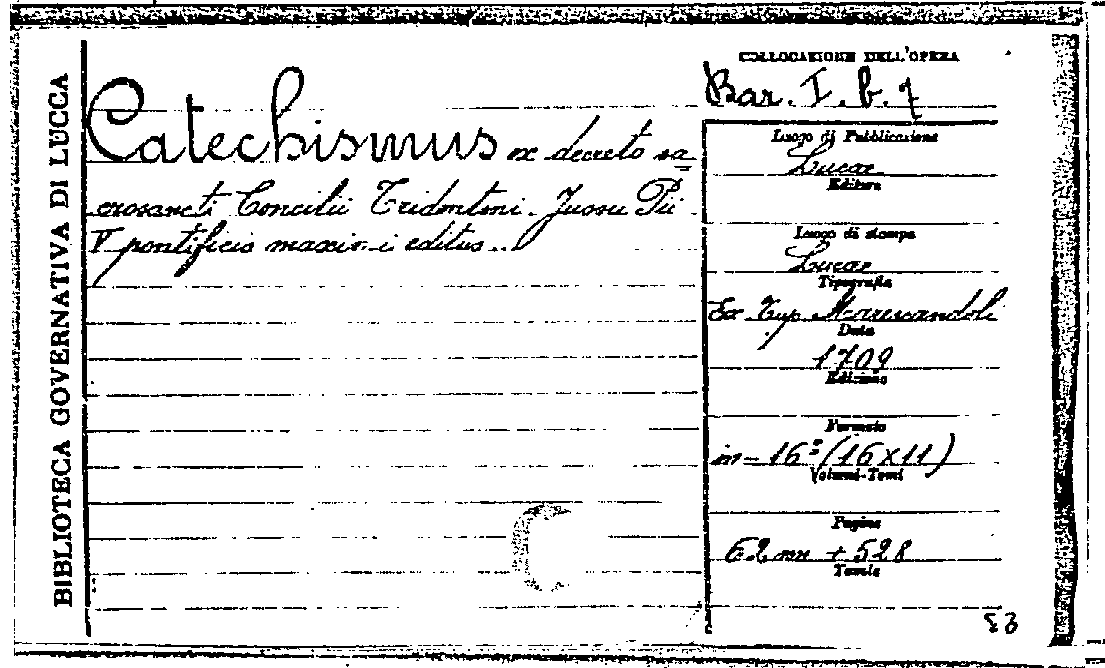 BIBLIOTECA GOVERNATIVA DI LUCCA
Catechismus ex decreto sa=
crosancti Concilii Tridentini Jussu Pii
V pontificis maximi editus..
COLLOCAZIONE DELL'OPERA
Bar. I. b. 7
Luogo di Pubblicazione
Lucae
Editore
Luogo di stampa
Lucae
Tipografia
Ex Typ. Marescandoli
Data
1709
Edizione
Formato
in-16° (16x11)
Volumi-Tomi
Pagine
62 nn + 528
Tavole
53